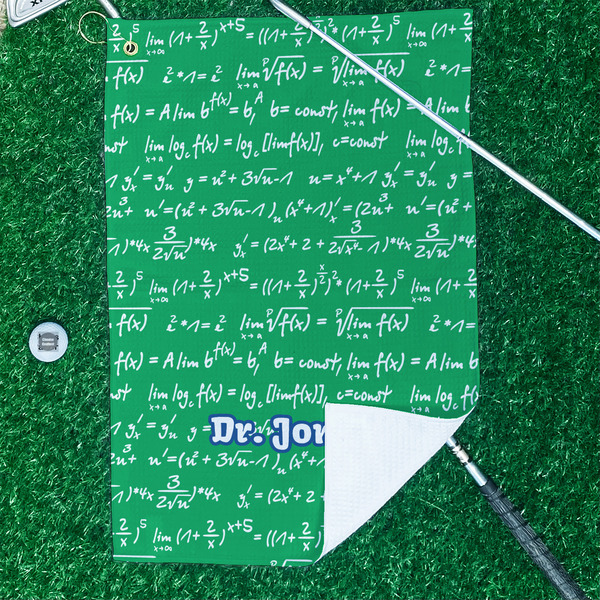 2/x)^5 lim x→∞ (1+ 2/x)^x+5 = ((1+ 2/x)^x/2)^2 * (1+ 2/x)^5 lim x→∞ (1+ 2/x
f(x) i²*1= i² lim x→a ᵖ√f(x) = ᵖ√lim x→a f(x) i²*1=
f(x) = A lim b^f(x) = b^A, b= const, lim x→a f(x) = A lim b
nst lim x→a log_c f(x) = log_c [lim f(x)], c=const lim x→a log_c f(
1 y'_x = y'_u y = u² + 3√u-1 u= x⁴+1 y'_x = y'_u y =
2u + 3 u'=(u² + 3√u-1)_u (x⁴+1)'_x = (2u + 3 u'=(u² +
-1)*4x 3/2√u)*4x y'_x = (2x⁴+ 2 + 3/2√x⁴-1)*4x 3/2√u)*4x
2/x)^5 lim x→∞ (1+ 2/x)^x+5 = ((1+ 2/x)^x/2)^2 * (1+ 2/x)^5 lim x→∞ (1+ 2/x
f(x) i²*1= i² lim x→a ᵖ√f(x) = ᵖ√lim x→a f(x) i²*1=
f(x) = A lim b^f(x) = b^A, b= const, lim x→a f(x) = A lim b
nst lim x→a log_c f(x) = log_c [lim f(x)], c=const lim x→a log_c f(
1 y'_x = y'_u y
Dr. Jon
2u + 3 u'=(u² + 3√u-1)_u (x⁴+1
-1)*4x 3/2√u)*4x y'_x = (2x⁴+ 2 +
2/x)^5 lim x→∞ (1+ 2/x)^x+5 = ((1+ 2/x)